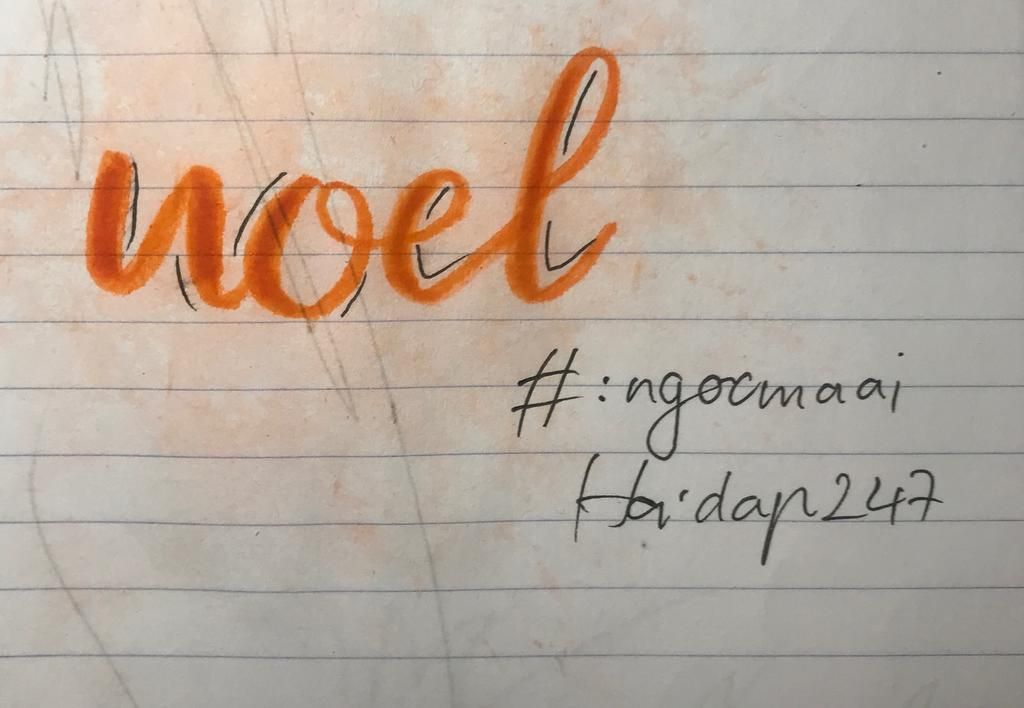 noel
#:ngocmaai
Hoidap247